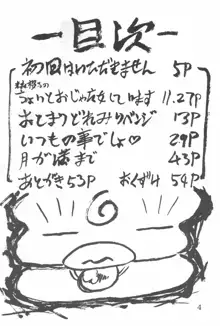 一目次一
初回はいただきません 5P
ちょいとおじゃまをしています 11.27P
おとまりどれみリベンジ 13P
いつもの事でしょ♡ 29P
月が満まで 43P
あとがき 53P おくづけ 54P
4